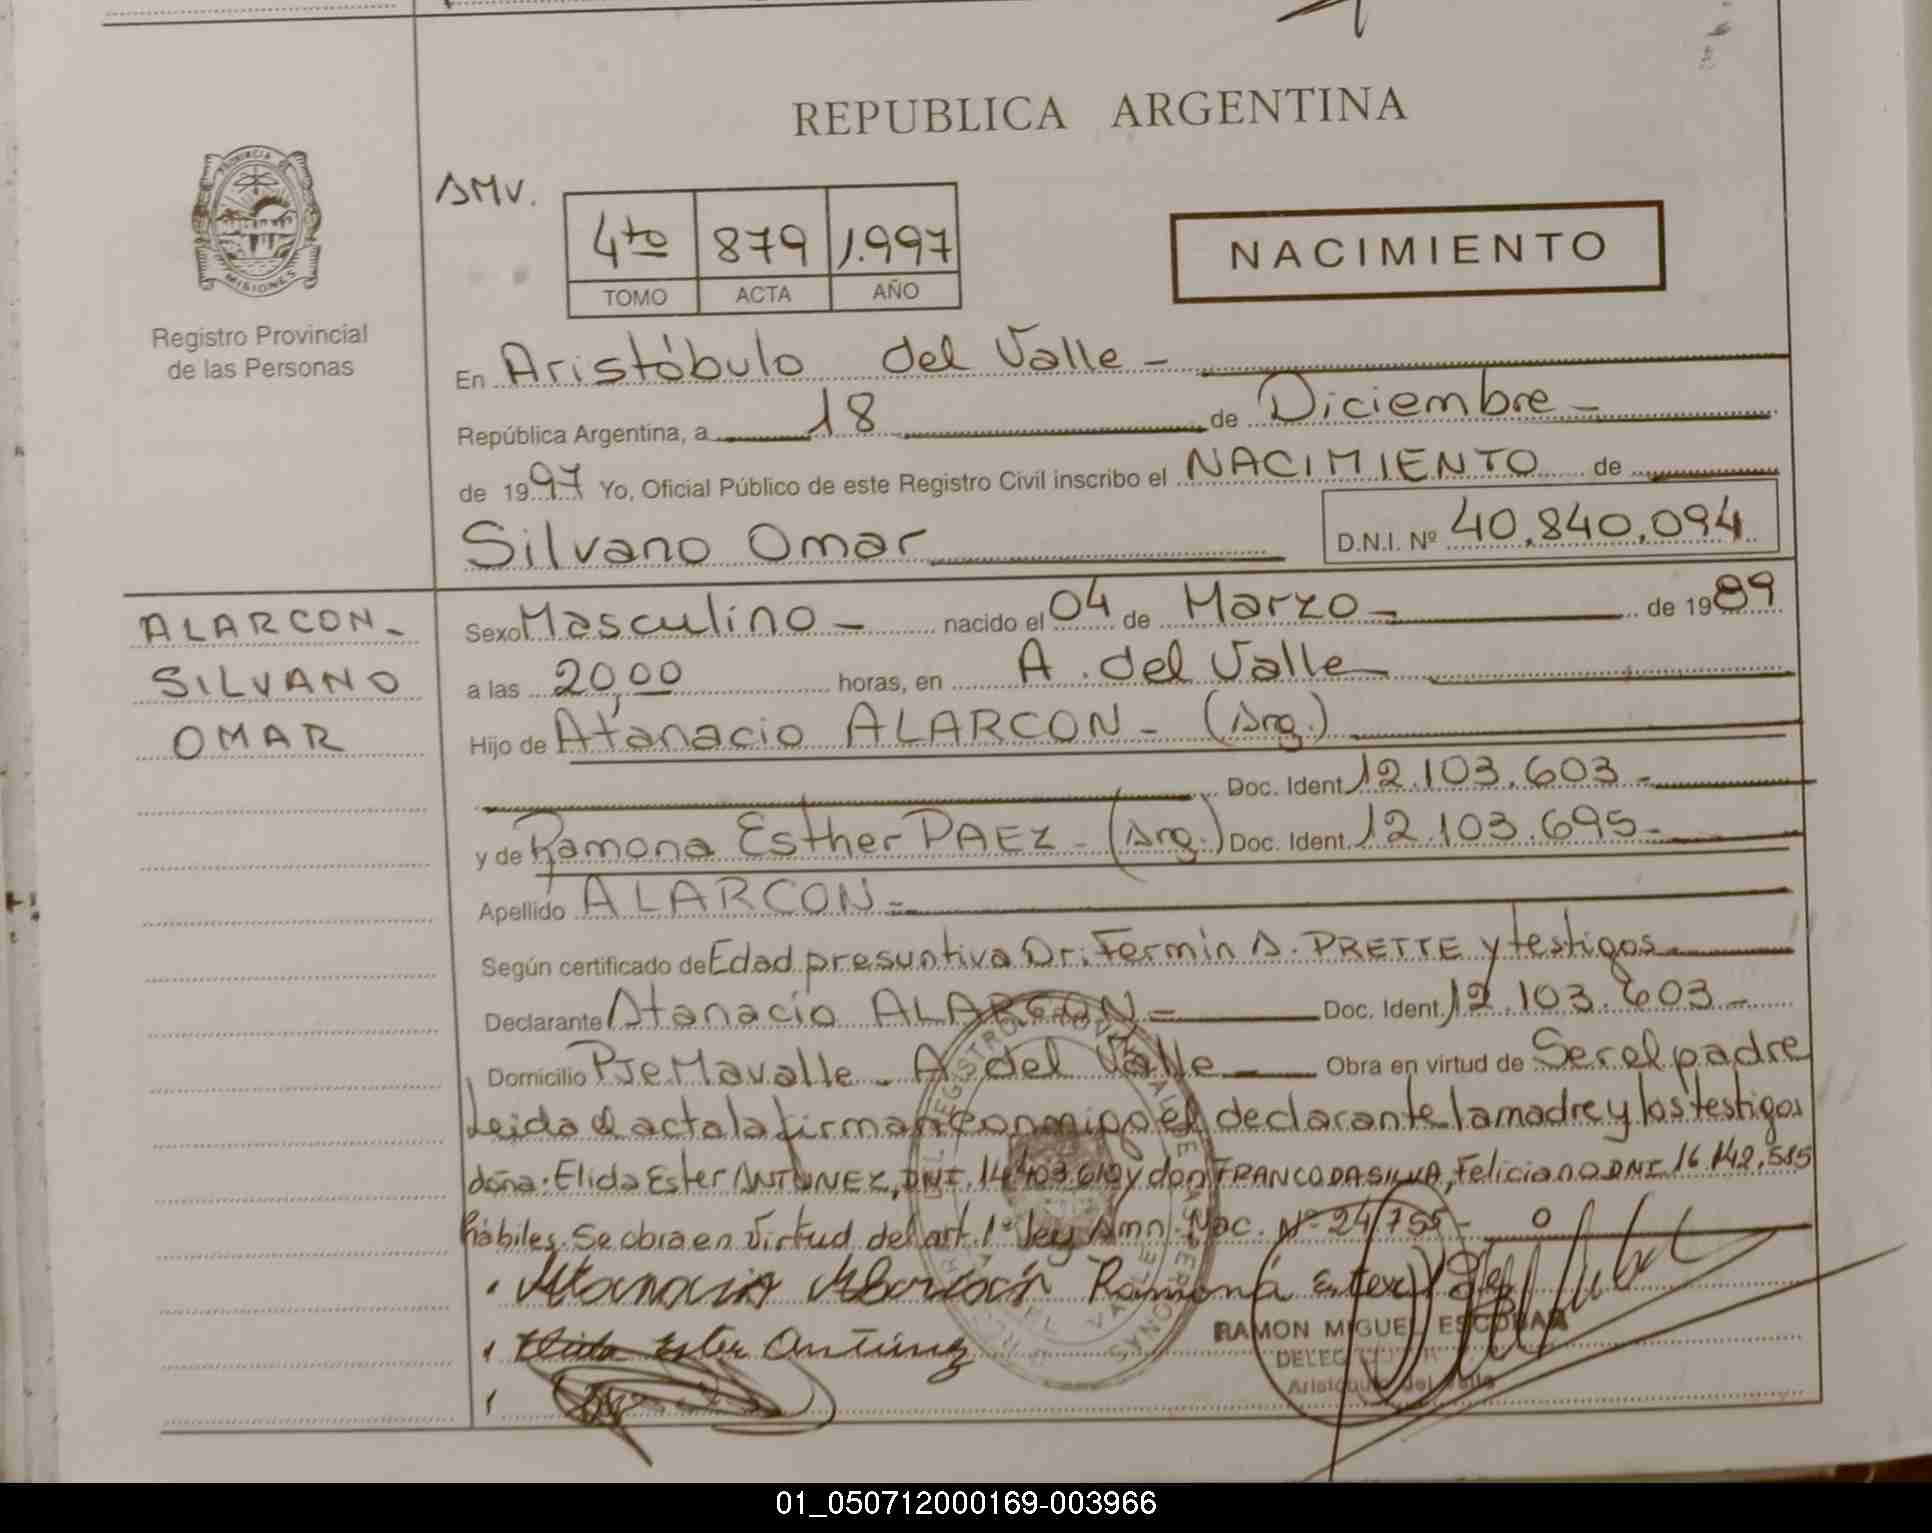 REPUBLICA ARGENTINA
PROVINCIA
MISIONES
Registro Provincial
de las Personas
4to 879 1.997
TOMO ACTA AÑO
NACIMIENTO
En Aristóbulo del Valle -
República Argentina, a 18 de Diciembre -
de 1997 Yo, Oficial Público de este Registro Civil inscribo el NACIMIENTO de
Silvano Omar D.N.I. Nº 40.840.094
ALARCON-
SILVANO
OMAR
Sexo Masculino - nacido el 04 de Marzo - de 1989
a las 20,00 horas, en A. del Valle
Hijo de Atanacio ALARCON - (Arg.)
Doc. Ident. 12.103.603 -
y de Ramona Esther PAEZ - (Arg.) Doc. Ident. 12.103.695 -
Apellido ALARCON -
Según certificado de Edad presuntiva Dr. Fermin A. PRETTE y testigos
Declarante Atanacio ALARCON - Doc. Ident. 12.103.603 -
Domicilio Pje. Mavalle - A. del Valle Obra en virtud de Ser el padre
Leida el acta la firman conmigo el declarante la madre y los testigos
doña: Elida Ester ANTUNEZ, DNI. 14.403.610 y don FRANCO DA SILVA, Feliciano DNI. 16.142.585
hábiles. Se obra en virtud del art. 1º ley Amn. Nac. Nº 24.755 -
Atanacio Alarcón Ramona Ester
Elida Ester Antúnez
RAMON MIGUEL ESCOBAR
Aristóbulo del Valle
01_050712000169-003966